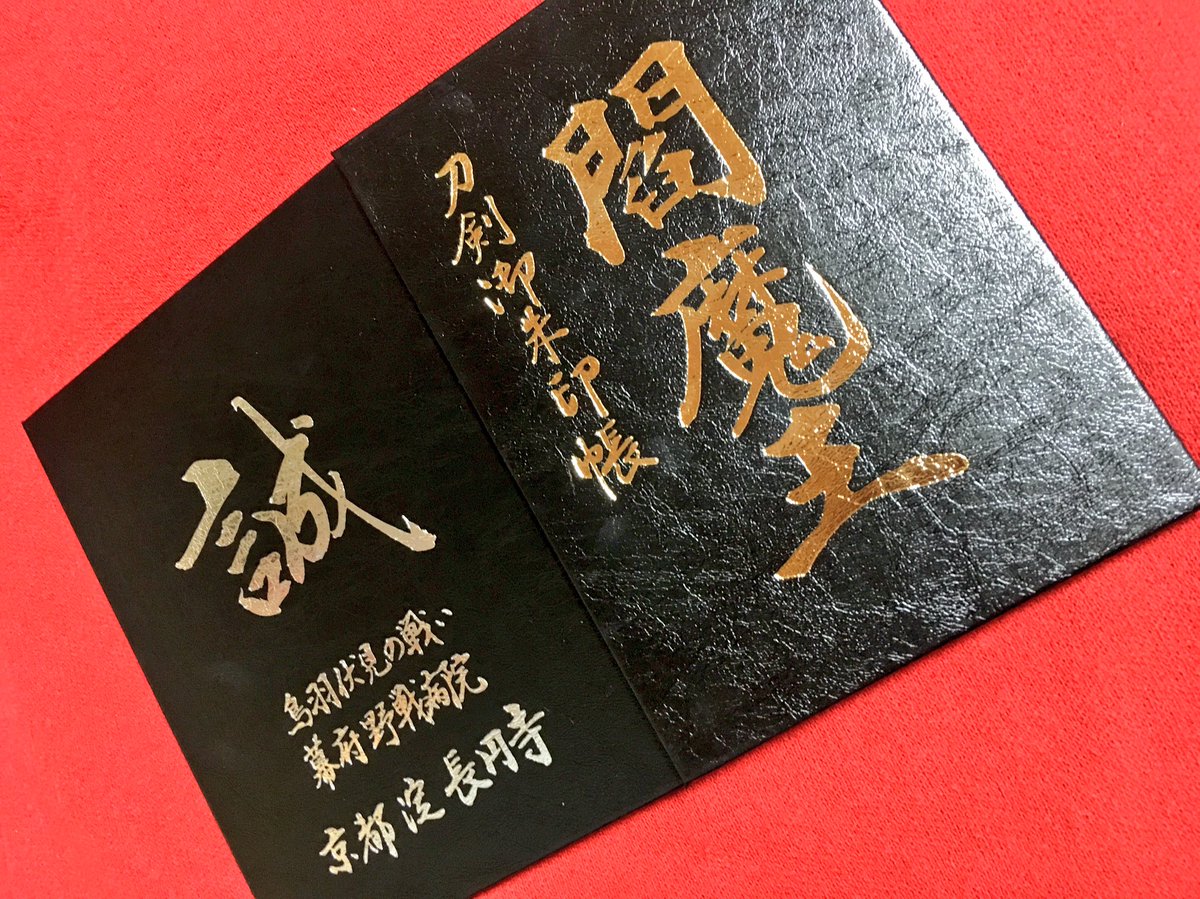 閻魔王
刀剣御朱印帳
誠
鳥羽伏見の戦い
幕府野戦病院
京都淀長円寺